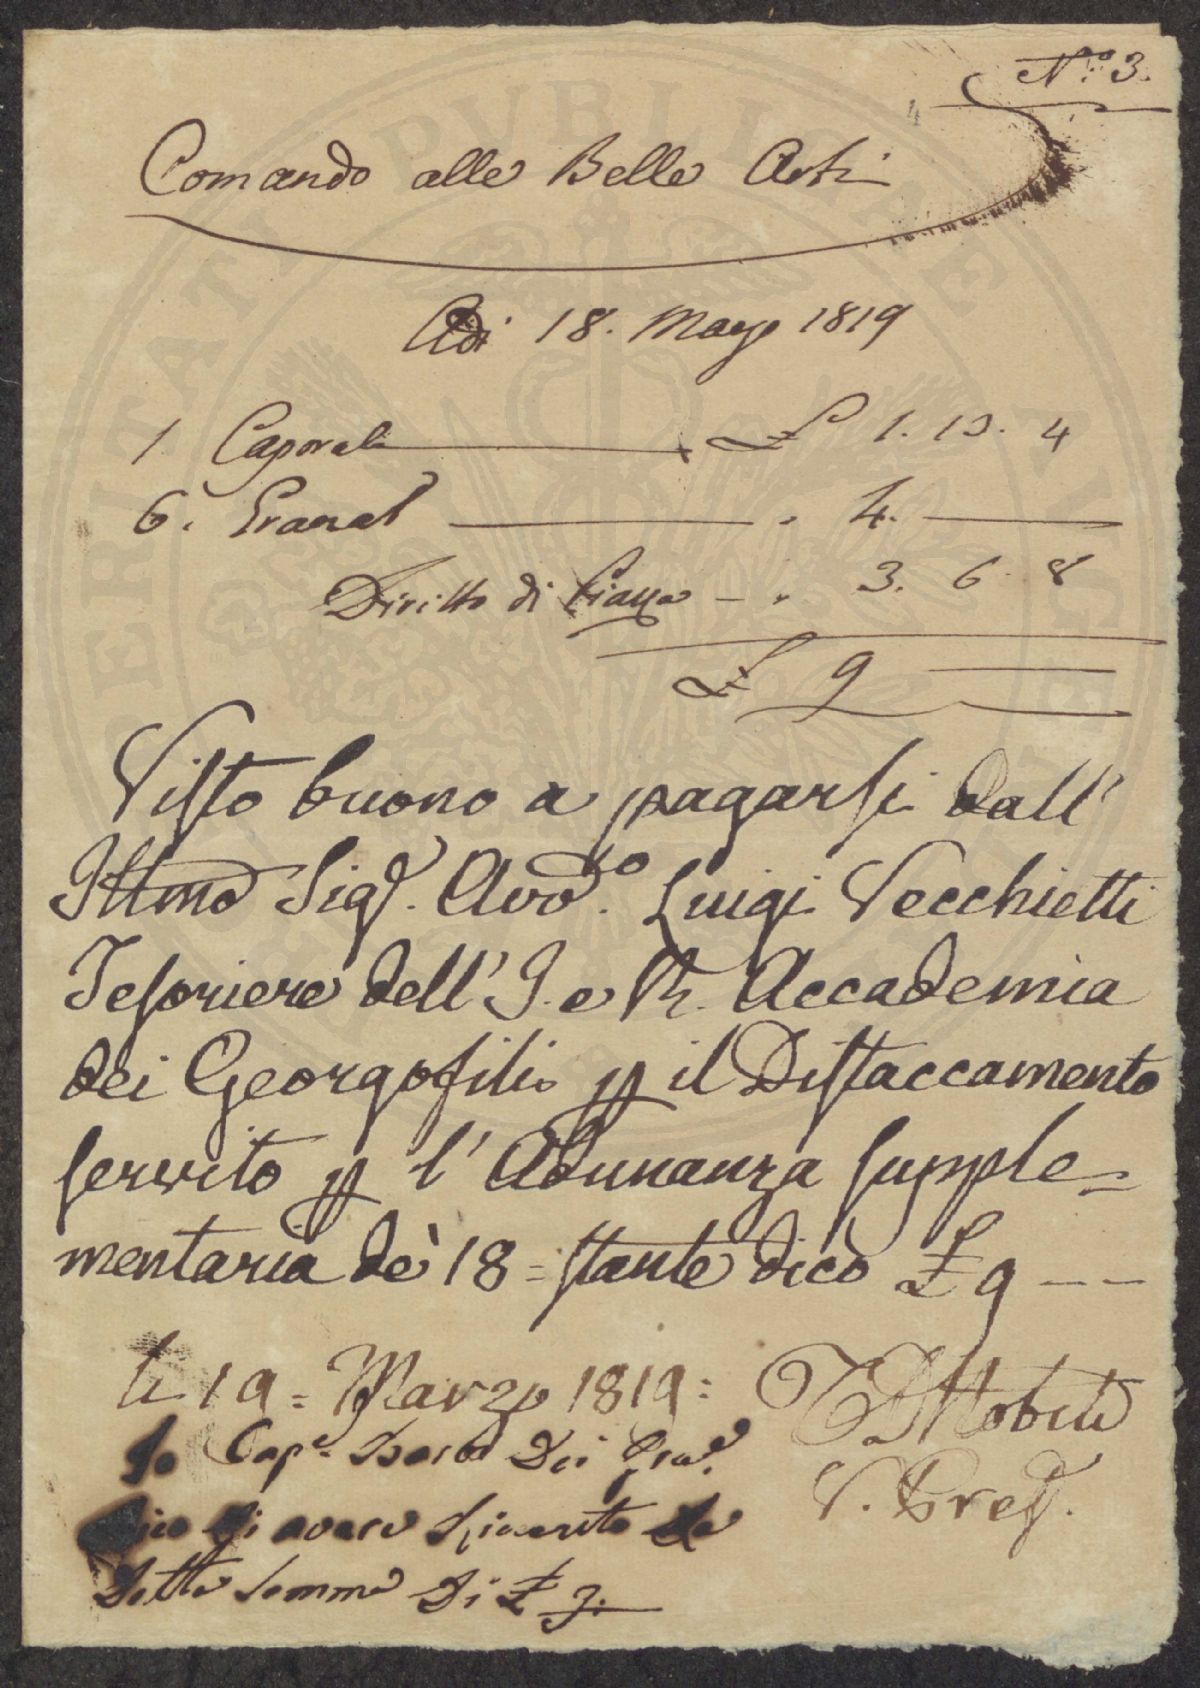 N.o 3.
4
Comando alle Belle Arti
Adì 18. Marzo 1819
1. Caporale £ 1. 13. 4
6. Granat 4.
Diritto di Piazza 3. 6. 8
£ 9
Visto buono a pagarsi dall'
Illmo Sigr. Avvo. Luigi Vecchietti
Tesoriere dell' I. e R. Accademia
dei Georgofili p il Distaccamento
servito p l' Adunanza supple=
mentaria de' 18 = stante dico £ 9 --
li 19 = Marzo 1819:
V. Pres.
Io Cape. Dei Gra.
Dico di avere Ricevuto La
Detta Somma Di £ 9.
PUBLICAE